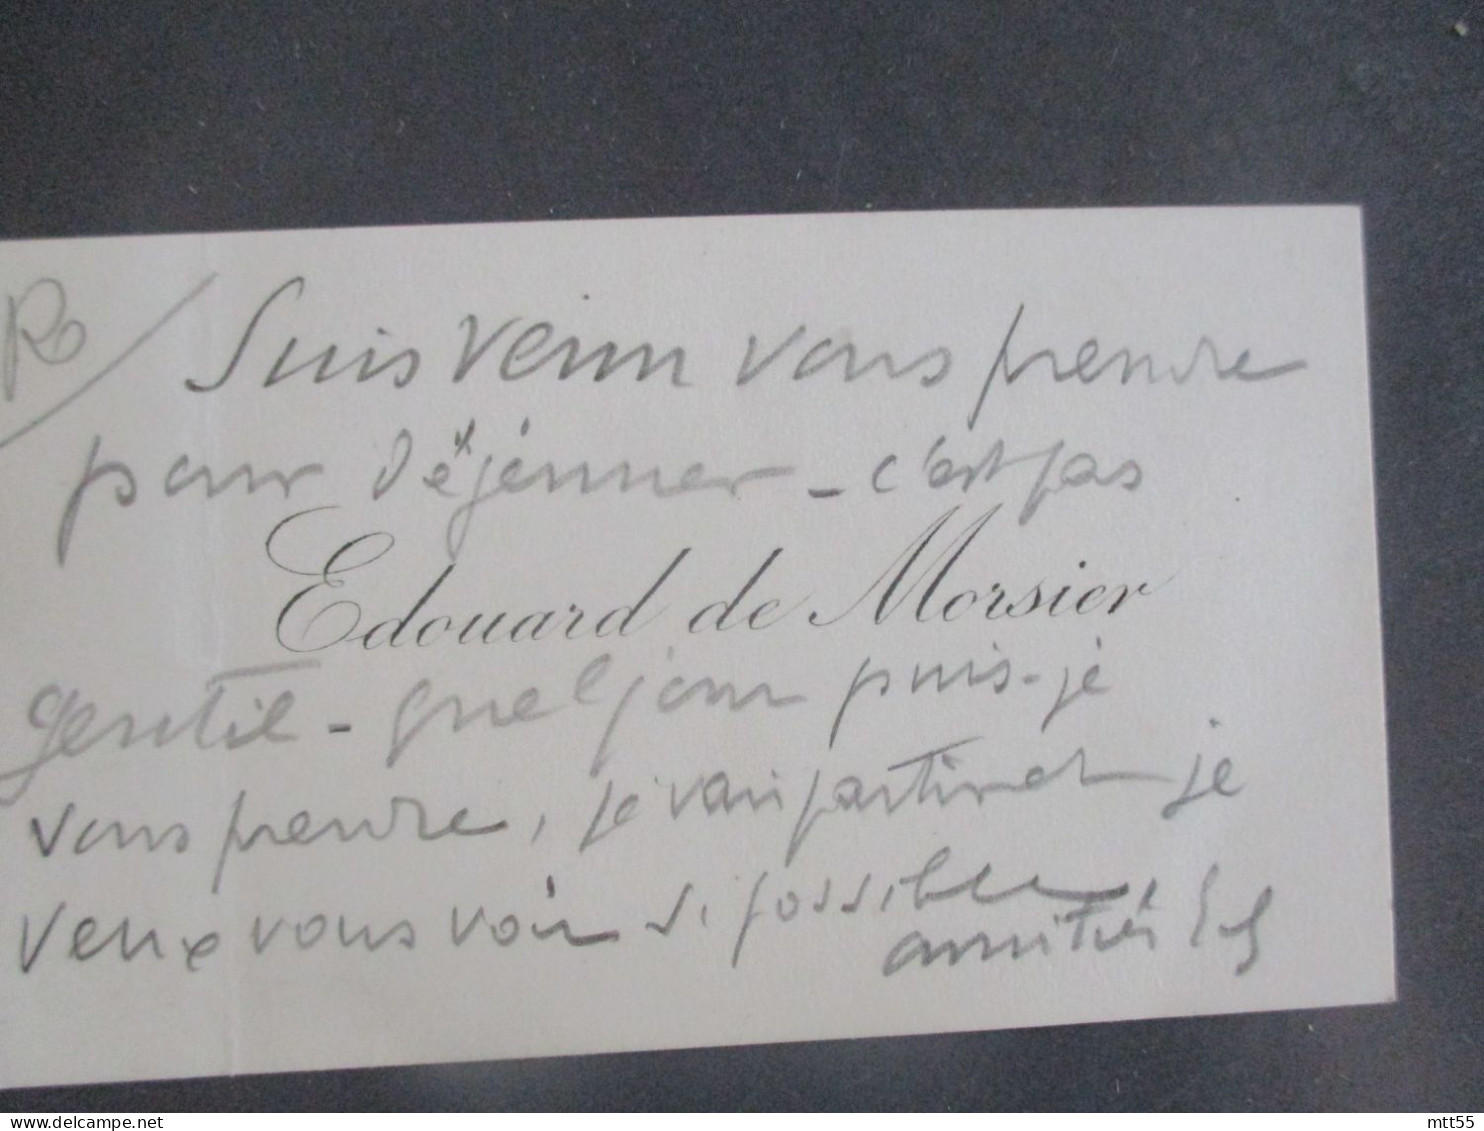 Ro/ Suis venu vous prendre
pour déjeuner - c'est pas
Edouard de Morsier
gentil - quel jour puis-je
vous prendre, je vais partir et je
veux vous voir si possible
amitiés
mtt55